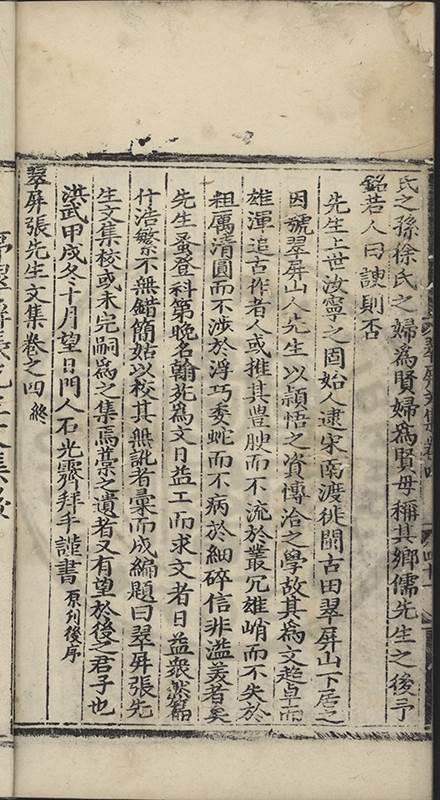 氏之孫徐氏之婦為賢婦為賢母稱其鄉儒先生之後予
銘若人曰諛則否
先生上世汝寧之固始人逮宋南渡徙閩古田翠屏山下居之
因號翠屏山人先生以頴悟之資慱洽之學故其為文超卓而
雄渾追古作者人或推其豊腴而不流於叢冗雄峭而不失於
粗厲清圓而不涉於浮巧委蛇而不病於細碎信非溢羙者矣
先生蚤登科第晚名翰苑為文日益工而求文者日益衆篇
什浩繁不無錯簡姑以校其無訛者彙而成編題曰翠屏張先
生文集校或未完嗣為之集焉蒙之遺者又有望於後之君子也
洪武甲戍冬十月望日門人石光霽拜手謹書 原刋後序
翠屏張先生文集卷之四終